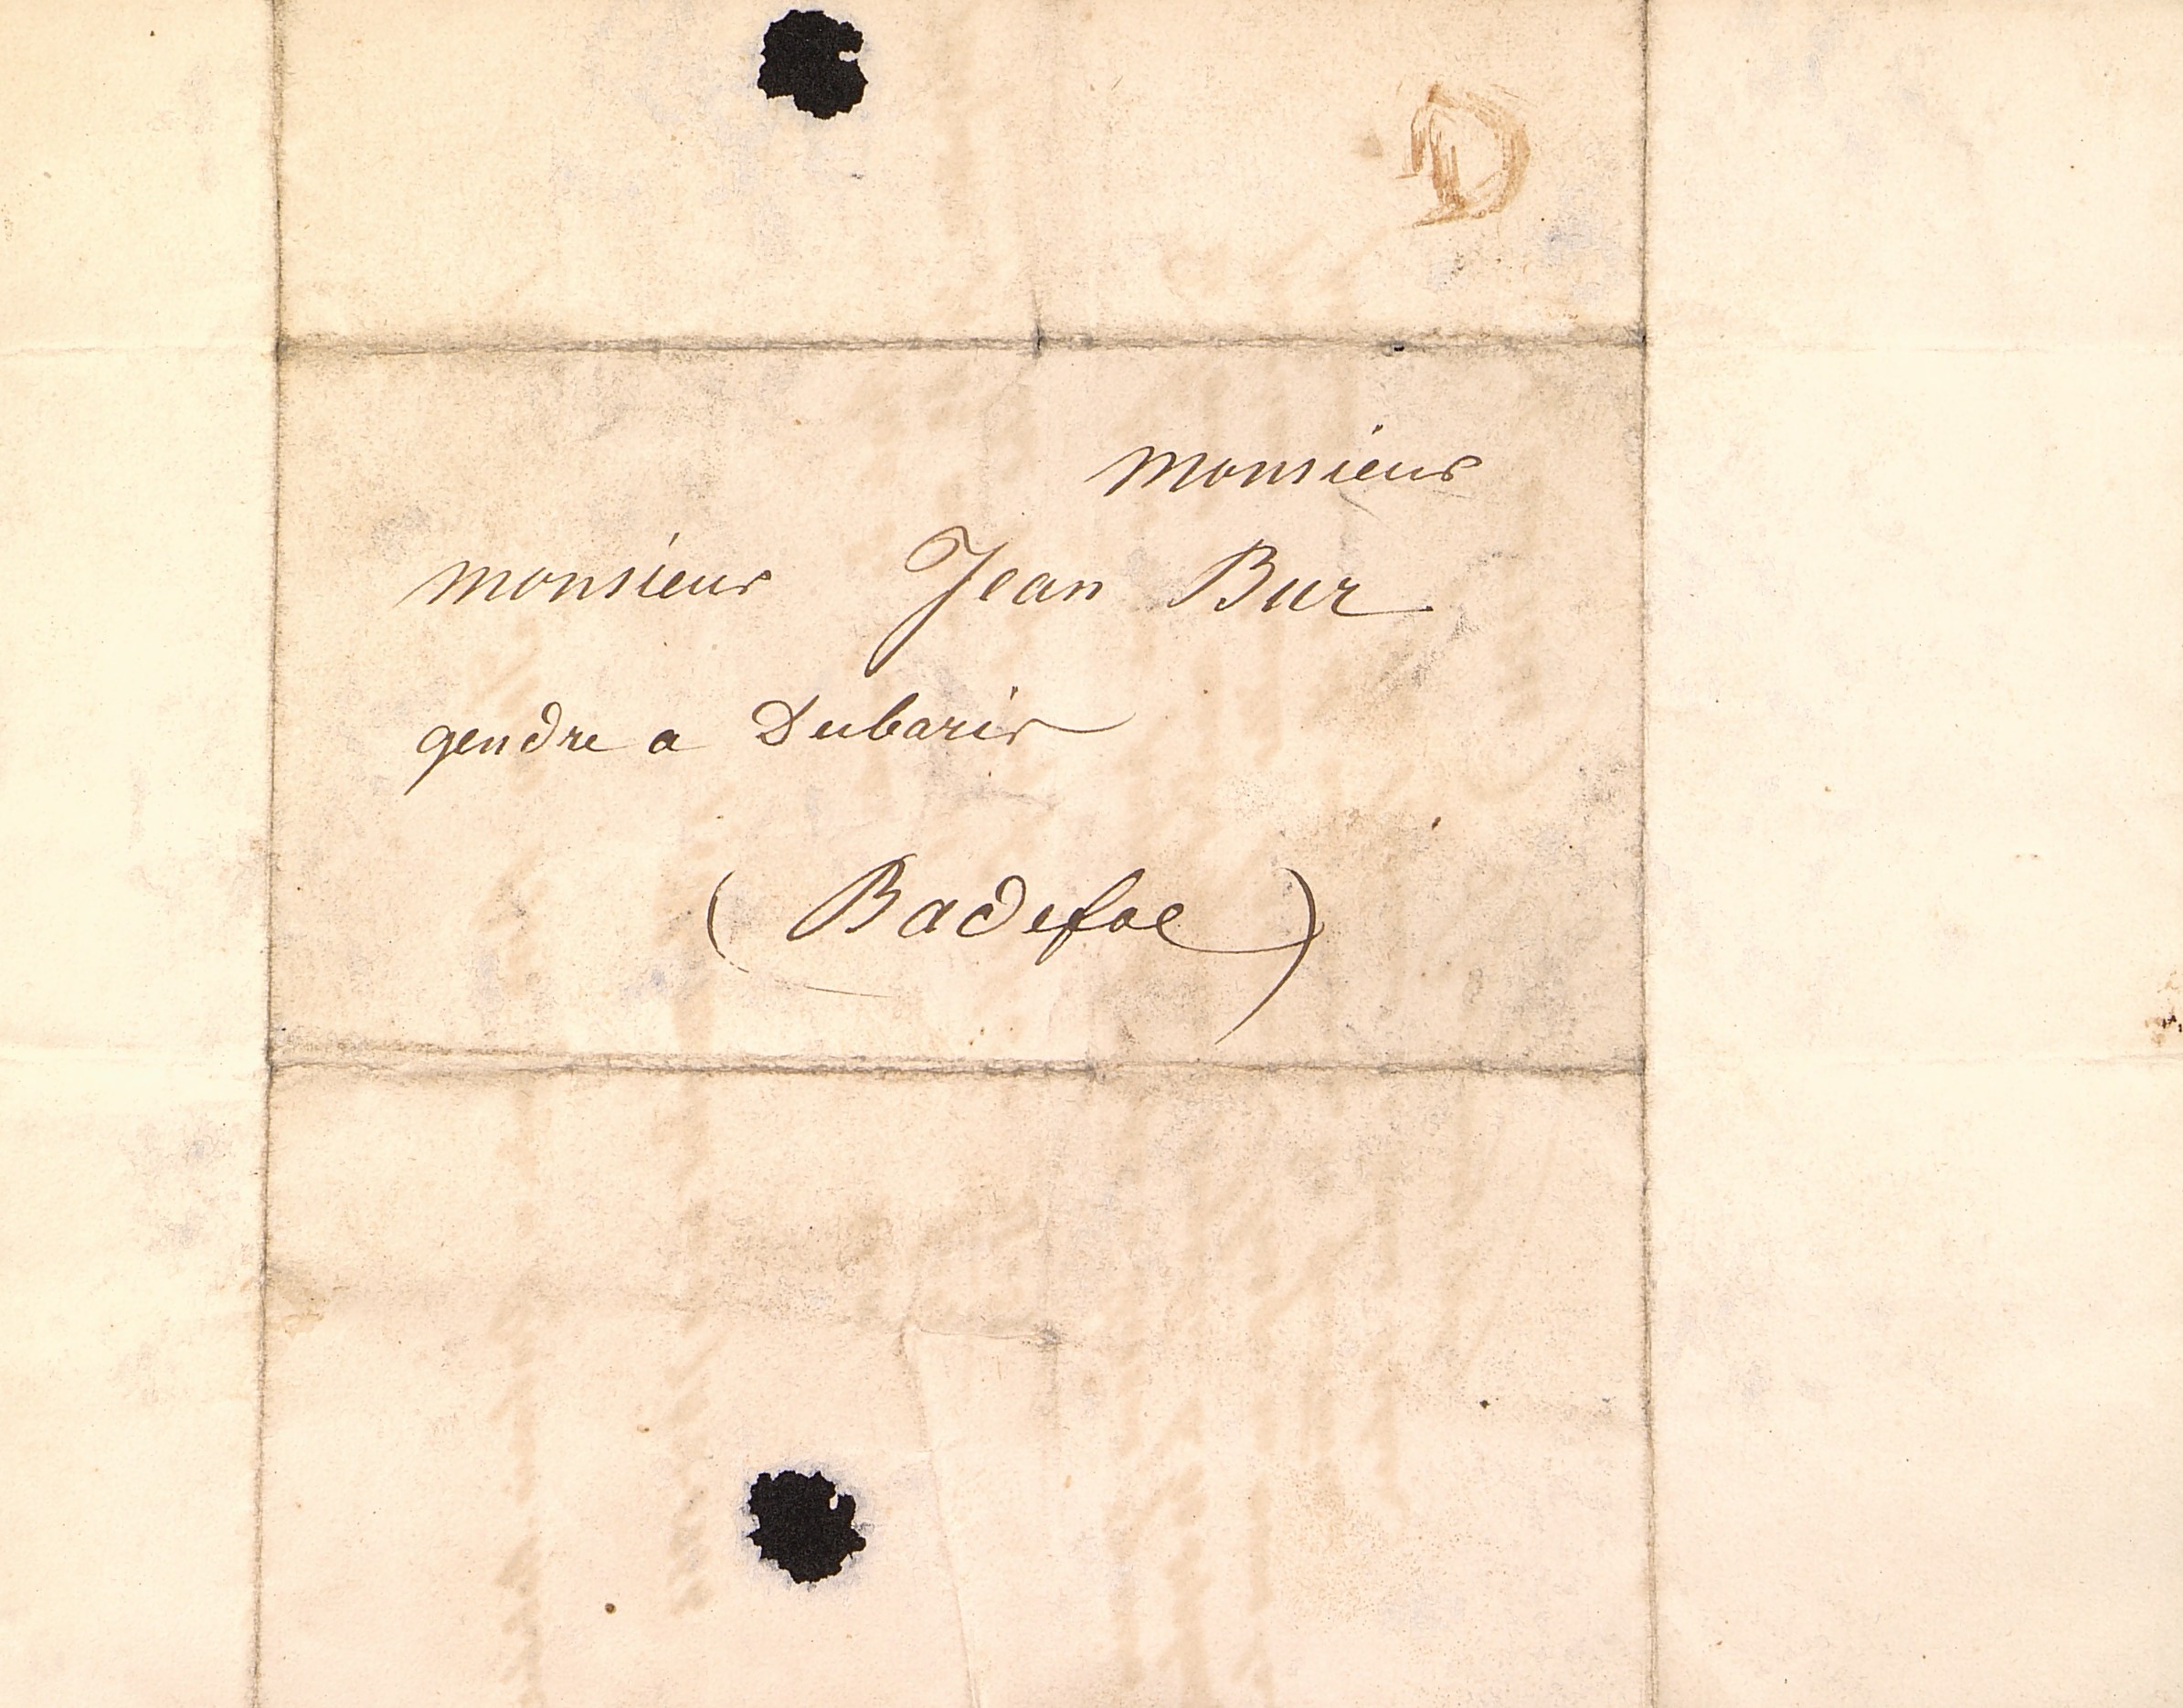 D
monsieur
monsieur Jean Bur
gendre a Dubarir
( Badefol )